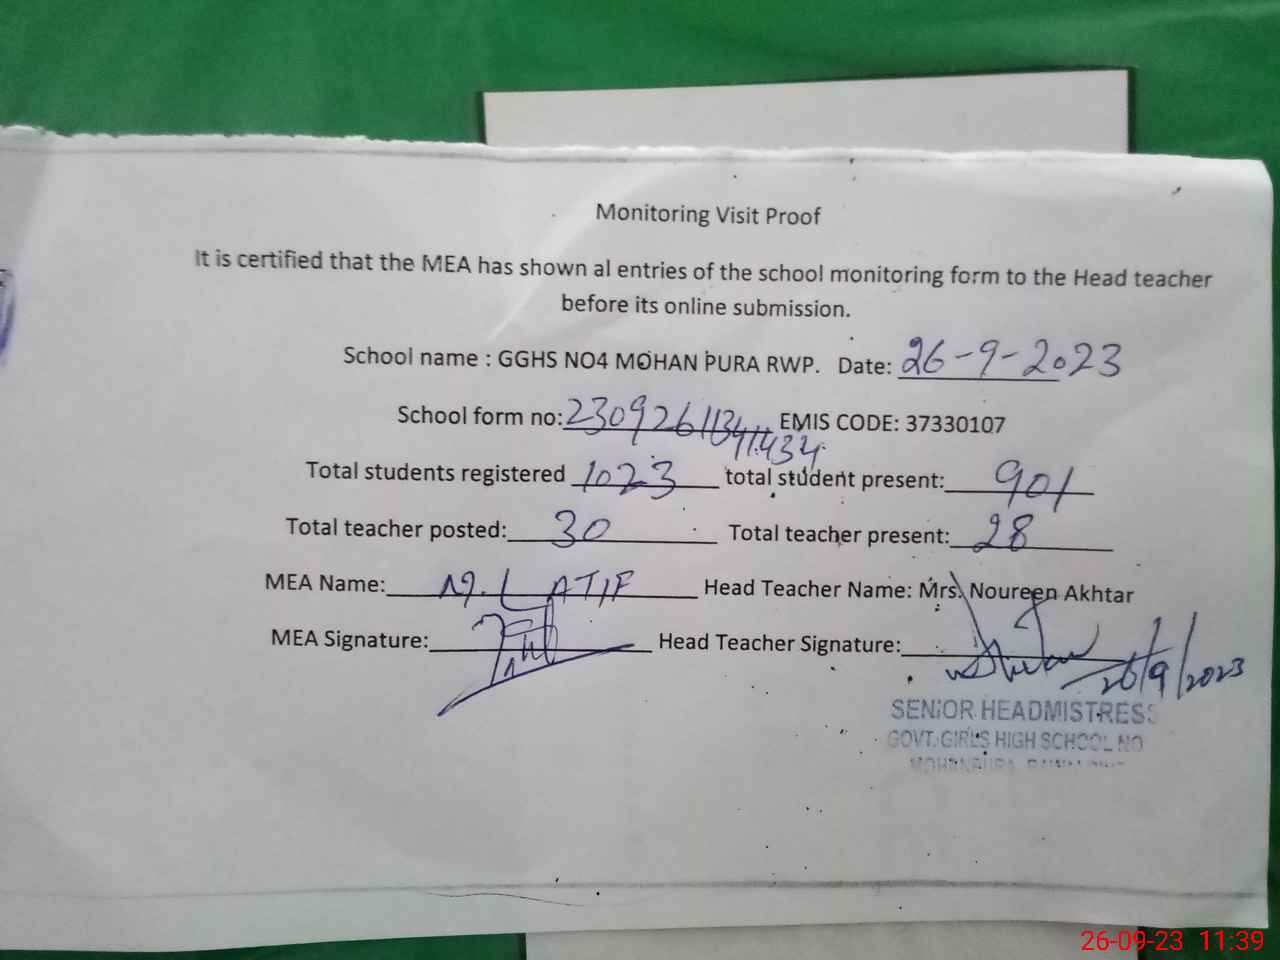 Monitoring Visit Proof
It is certified that the MEA has shown al entries of the school monitoring form to the Head teacher
before its online submission.
School name : GGHS NO4 MOHAN PURA RWP. Date: 26-9-2023
School form no: EMIS CODE: 37330107
Total students registered 1023 total student present: 901
Total teacher posted: 30 Total teacher present: 28
MEA Name: M. LATIF Head Teacher Name: Mrs. Noureen Akhtar
MEA Signature: Head Teacher Signature: 26/9/2023
SENIOR HEADMISTRESS
GOVT. GIRLS HIGH SCHOOL NO
26-09-23 11:39